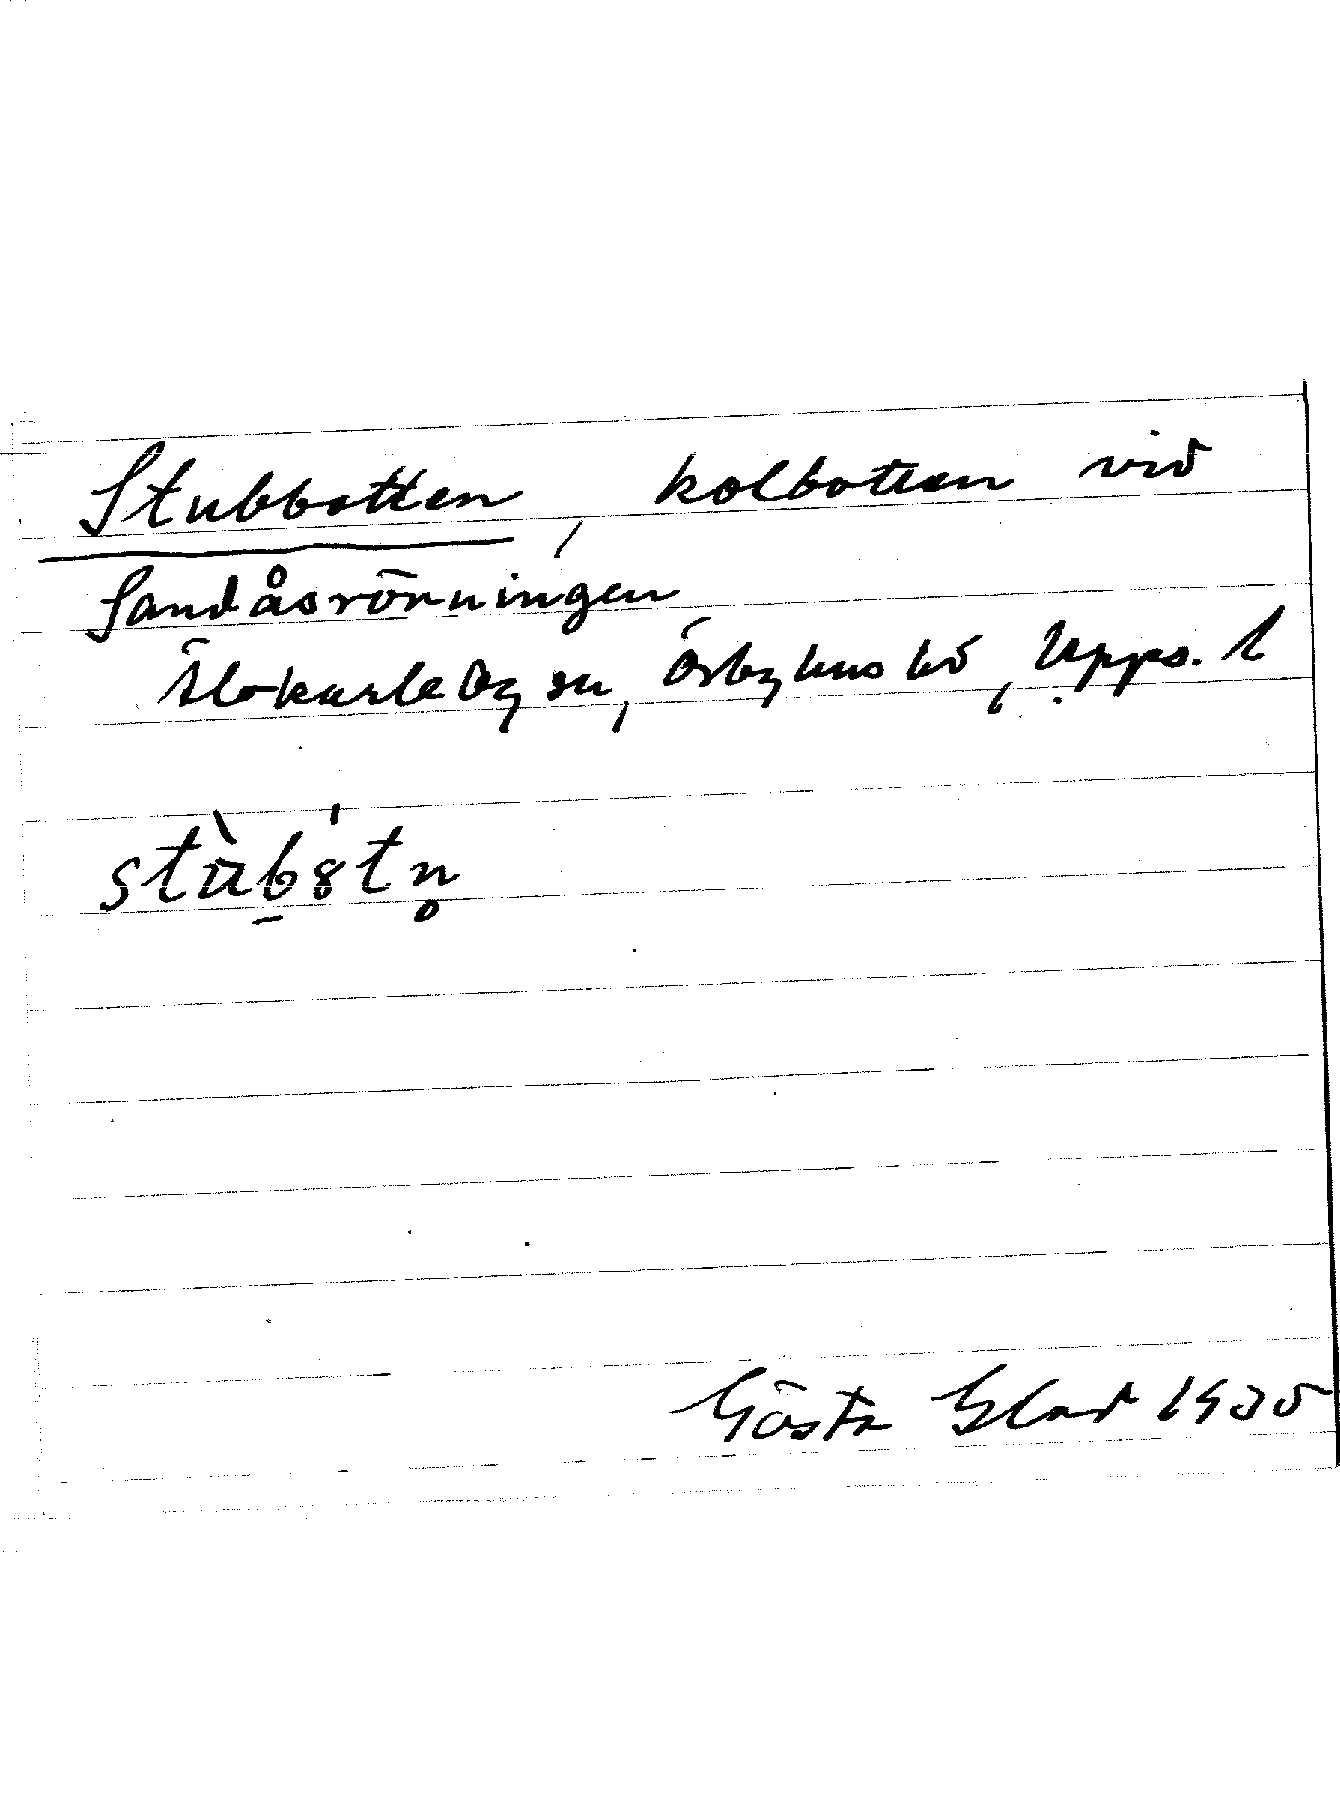 Stubbotten, kolbotten vid
Sandåsrörningen
Älvkarleby sn, Örbyhus hd, Upps. l
stùb8tn
Gösta Glad 1935